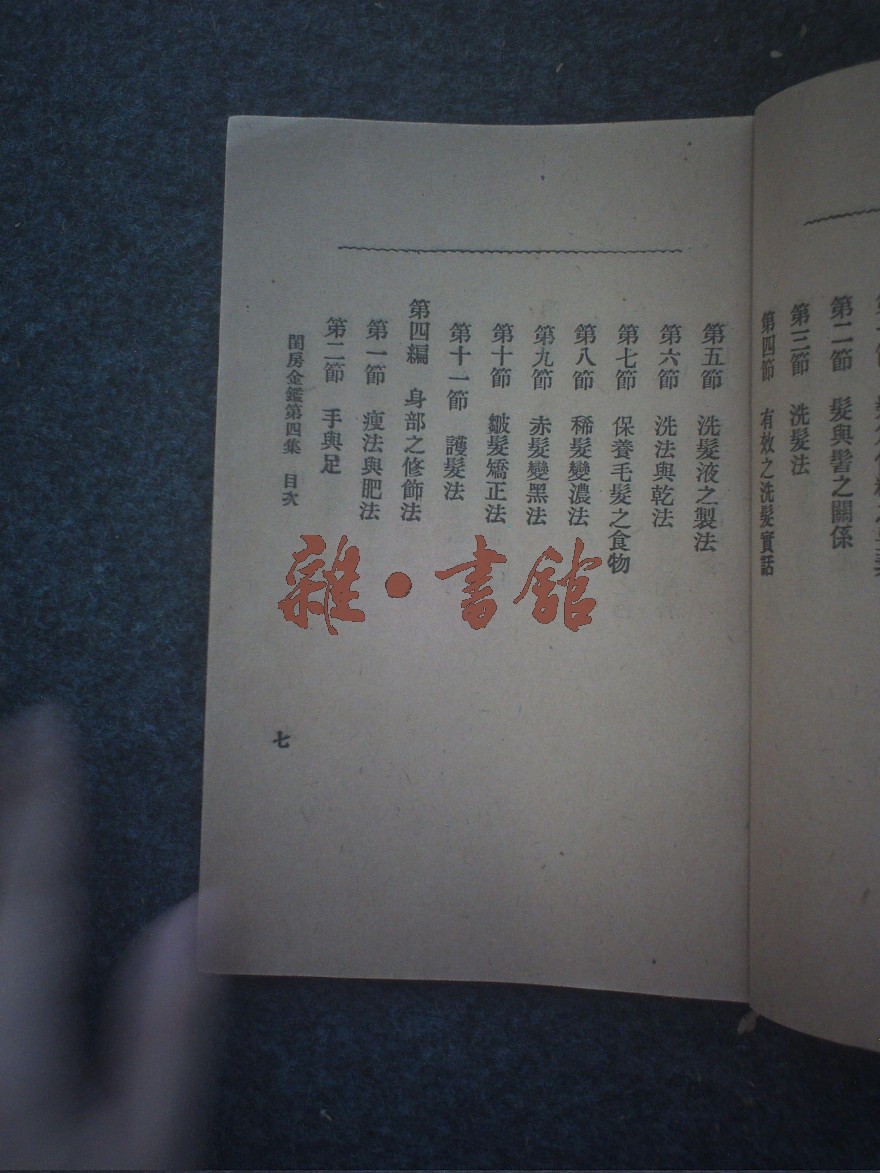 第二節 髮與髻之關係
第三節 洗髮法
第四節 有效之洗髮實話
第五節 洗髮液之製法
第六節 洗法與乾法
第七節 保養毛髮之食物
第八節 稀髮變濃法
第九節 赤髮變黑法
第十節 皺髮矯正法
第十一節 護髮法
第四編 身部之修飾法
第一節 瘦法與肥法
第二節 手與足
閨房金鑑第四集 目次
七
雜·書館